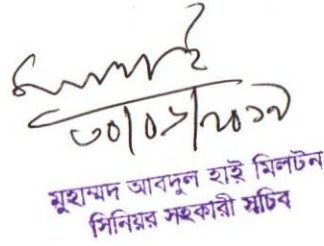 ৩০/০১/২০১৭
মুহাম্মদ আবদুল হাই মিলটন
সিনিয়র সহকারী সচিব